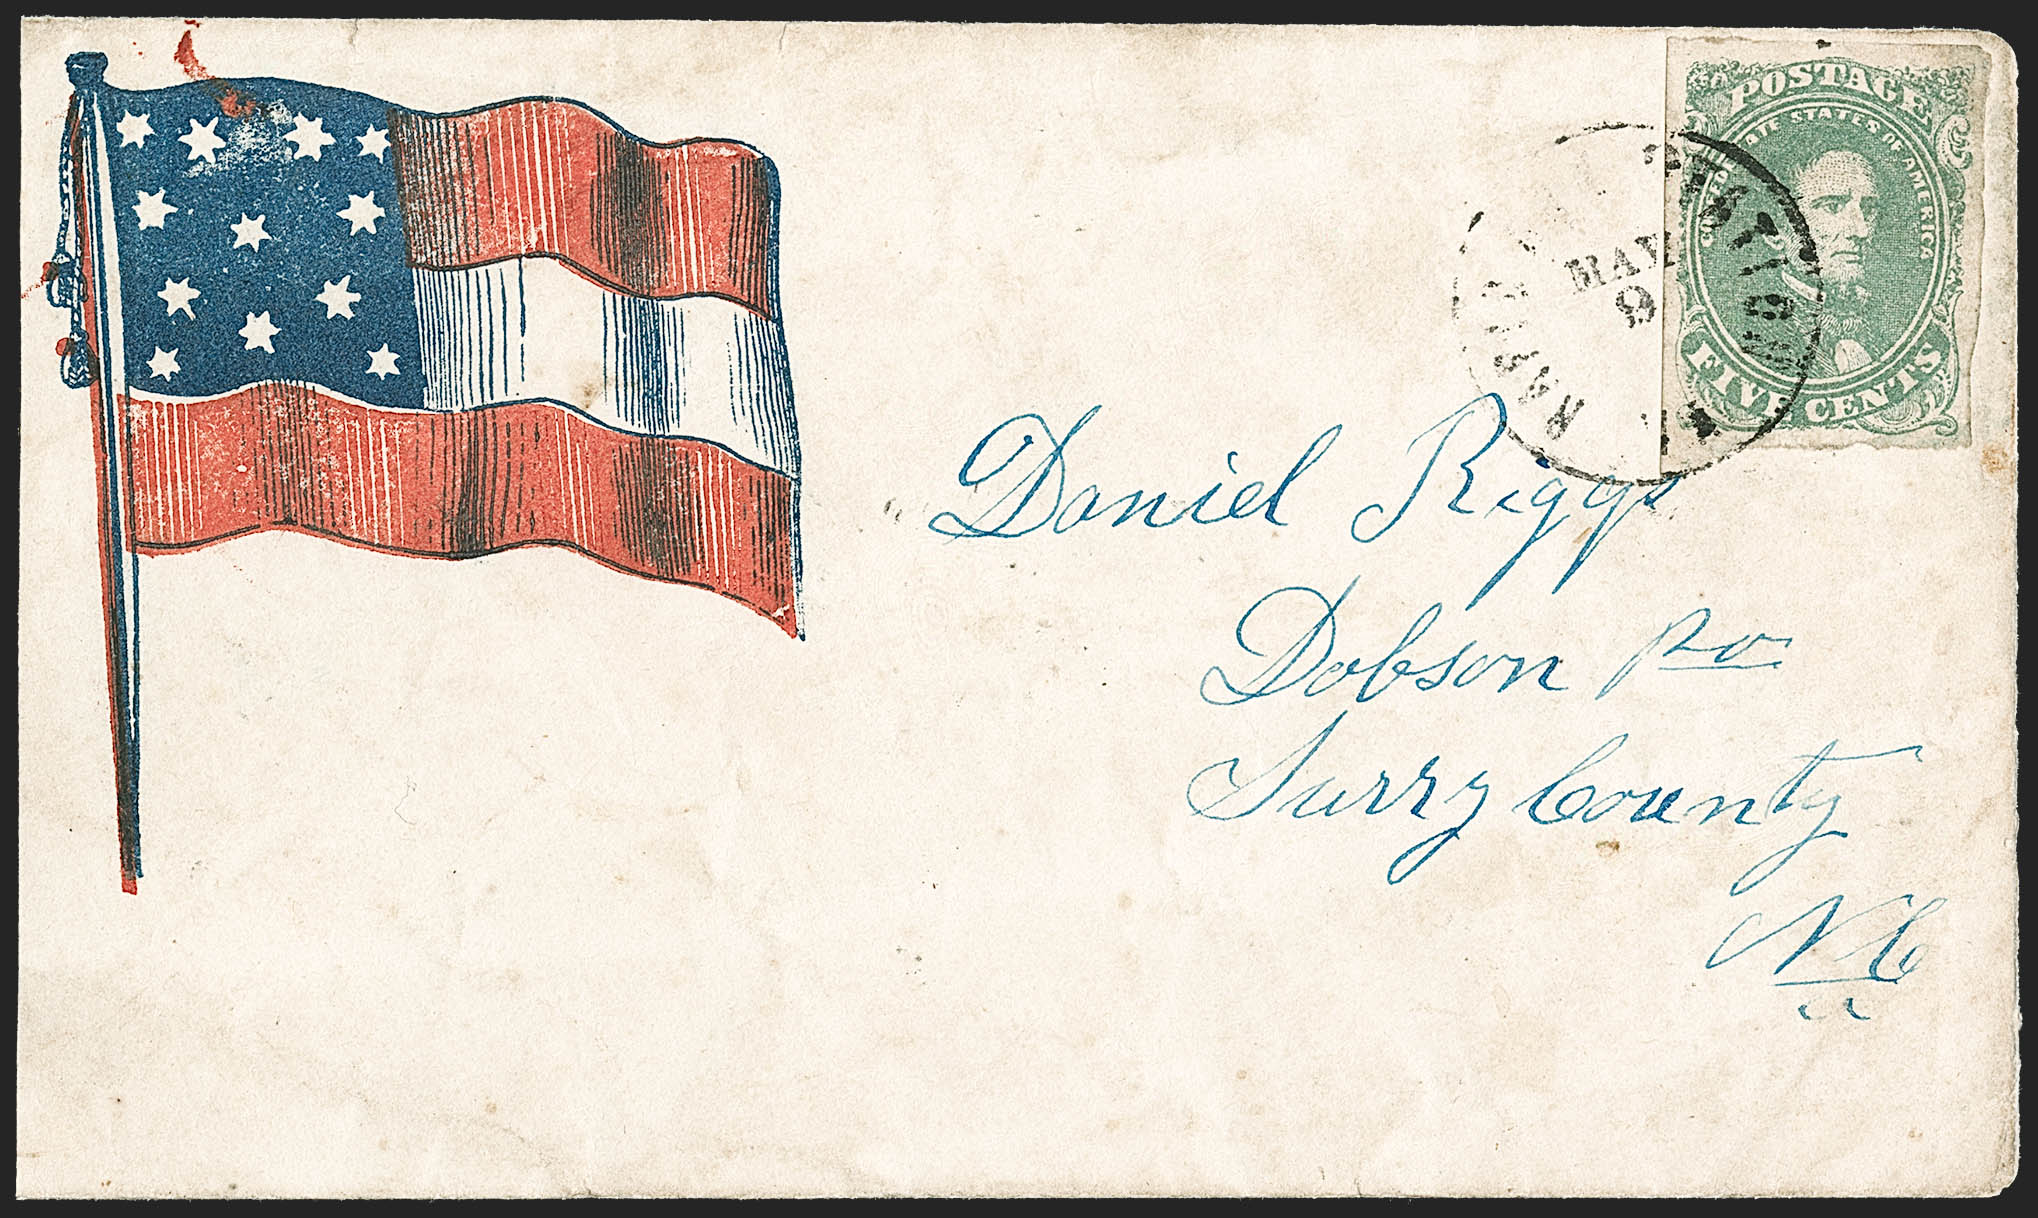 POSTAGE
CONFEDERATE STATES OF AMERICA
FIVE CENTS
MAY
9
Daniel Riggs
Dobson Po
Surry County
NC